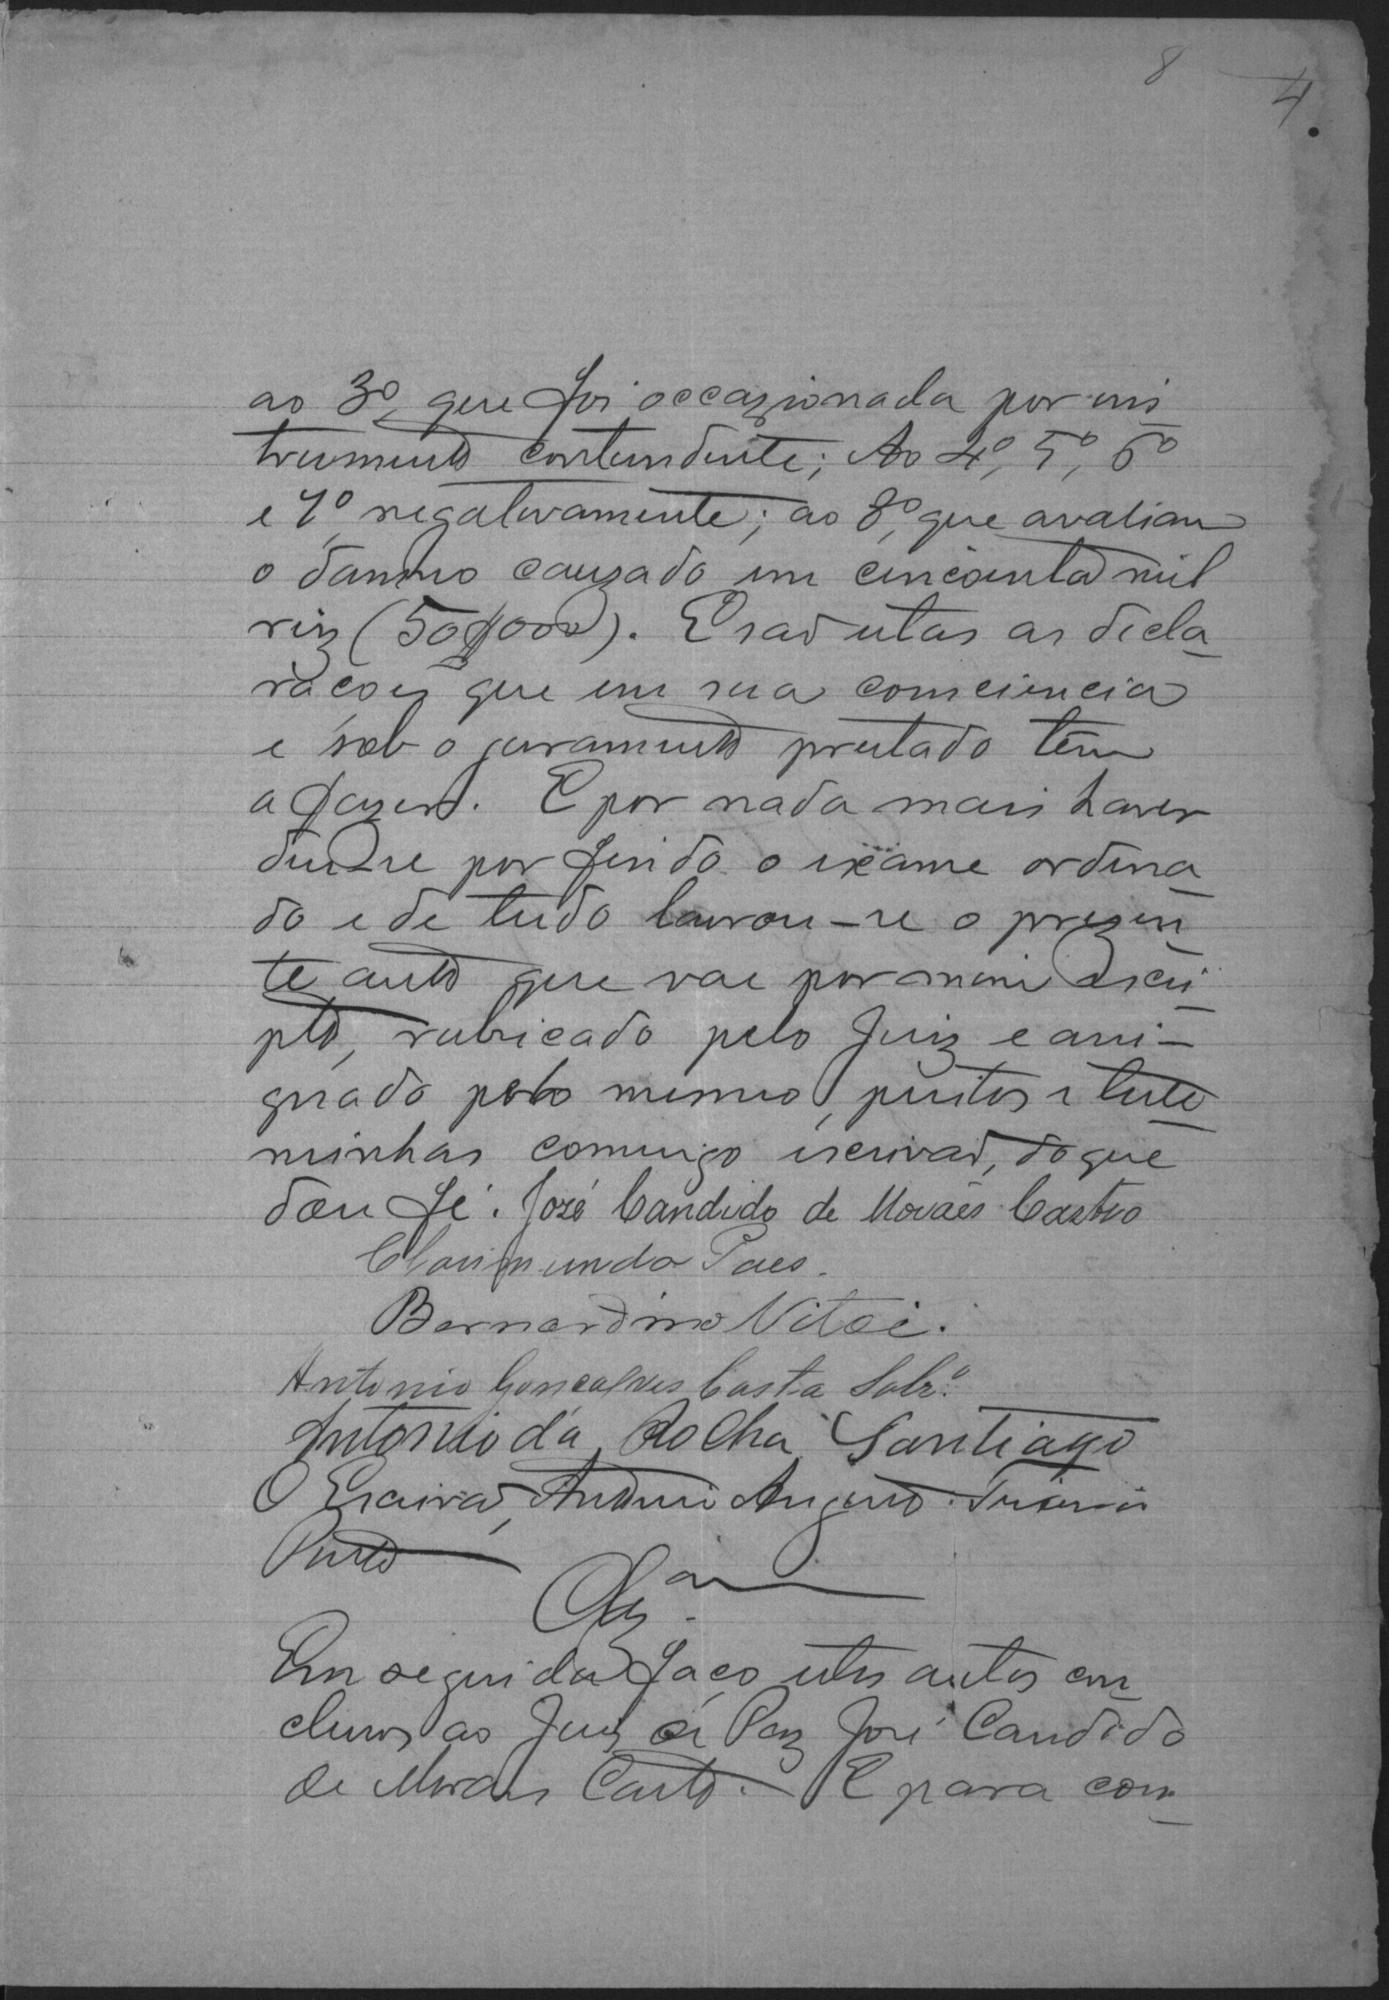 8 4.
ao 3º, que foi occazionada por ins
trumento contundente; Ao 4º, 5º, 6º
e 7º, negativamente; ao 8º, que avaliam
o damno cauzado em cincoenta mil
reiz (50$000). E saõ estas as decla
raçoez que em sua comsciencia
e sob o juramento prestado têm
a fazer. E por nada mais haver
deu-se por findo o exame ordena
do e de tudo lavrou-se o prezen
te auto que vae por mim escri-
pto, rubricado pelo Juiz e assi-
gnado pelo mesmo, peritos e teste
minhas comigo escrivaõ, do que
dou fé. José Candido de Moraes Castro
Clarimundo Paes.
Bernardino Vitoi.
Antonio Gonçalves Costa Sobrº.
Antonio da Rocha Santiago
O Escrivaõ, Antonio Augusto
Pinto
Clzam
Em seguida faço estes autos con
clusos ao Juiz de Paz José Candido
de Moraes Castro. E para con